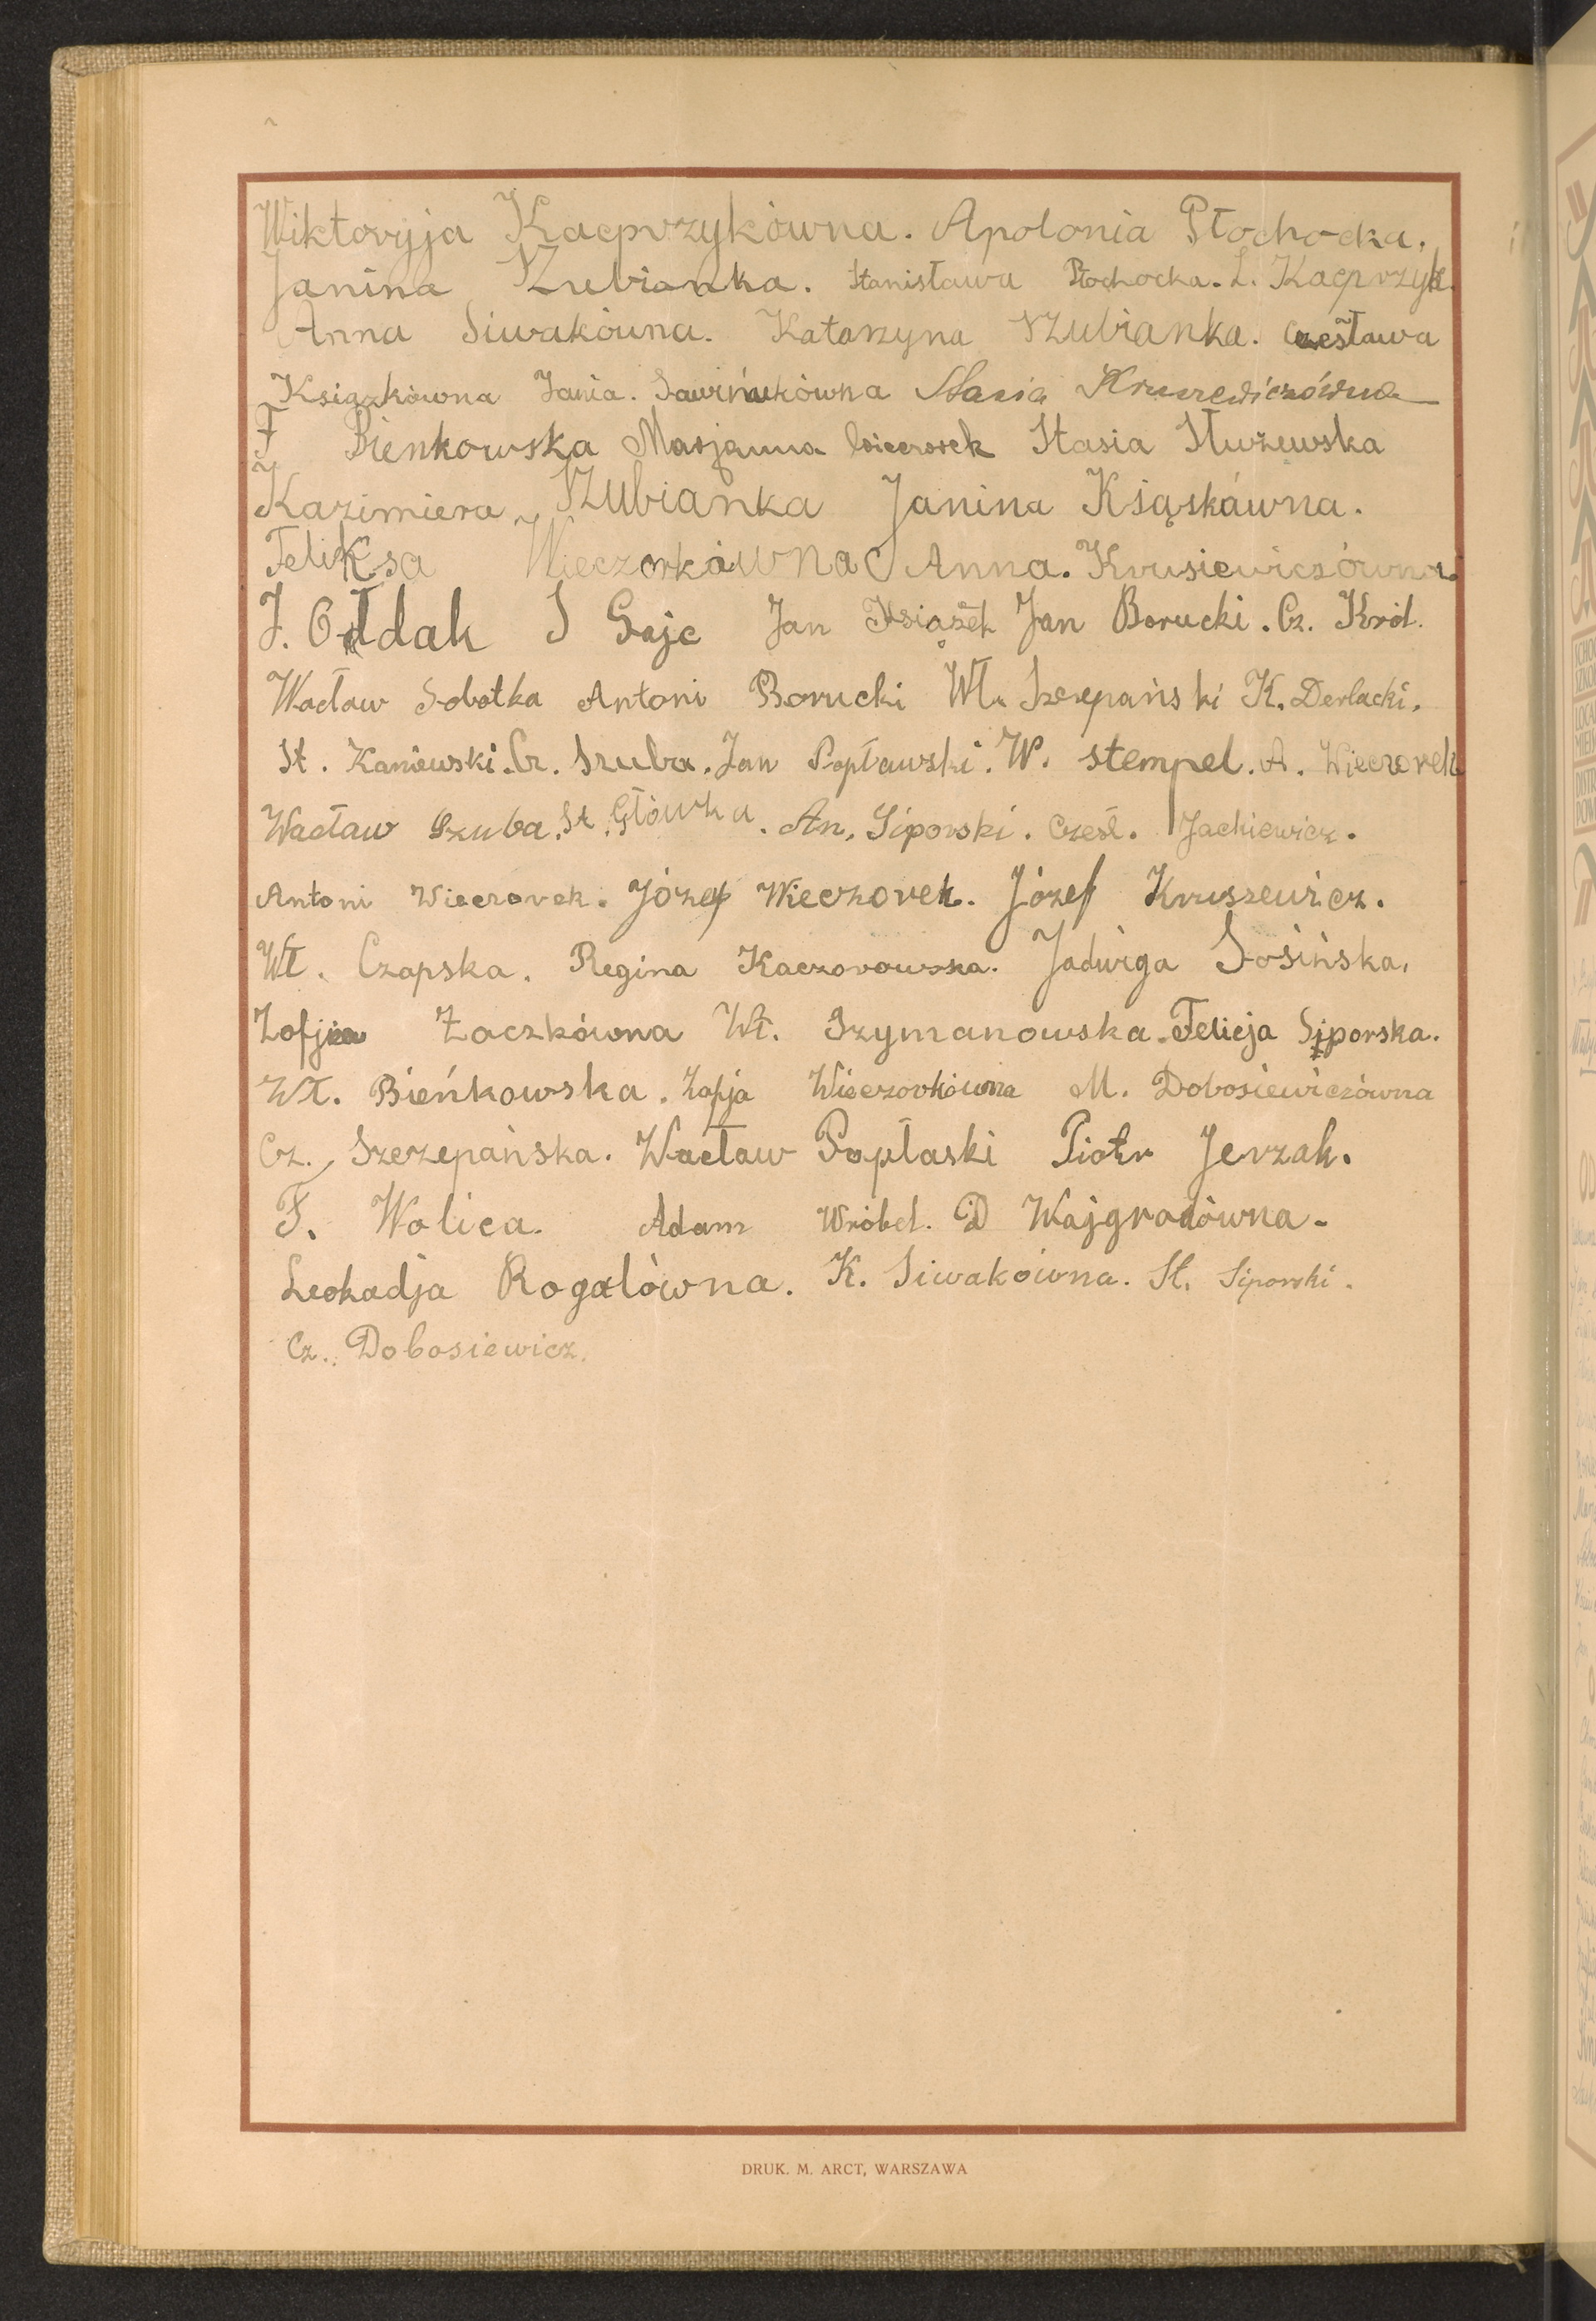 Wiktoryja Kacprzykówna. Apolonia Płochocka.
Janina Szubianka. Stanisława Płochocka. L. Kacprzyk.
Anna Siwakówna. Katarzyna Szubianka. Czesława
Książkówna Jania. Stasia Kruszewiczówna
F Bienkowska Marjanna Wieczorek Stasia Służewska
Kazimiera Szubianka Janina Ksiąskówna.
Feliksa Wieczorkówna Anna. Krusiewiczówna.
J. Ołdak S Gajc Jan Książek Jan Borucki. Cz. Król.
Wacław Sobotka Antoni Borucki Wł. Szczepański K. Derlacki.
St. Kaniewski. Cz. Szuba. Jan Popławski. W. stempel. A. Wieczorek
Wacław Szuba. St. Główka. An. Siporski. Czesł. Jackiewicz.
Antoni Wieczorek. Józef Wieczorek. Józef Kruszewicz.
Wł. Czapska. Regina Kaczorowska. Jadwiga Sosińska.
Zofja Żaczkówna Wł. Szymanowska. Felicja Siporska.
Wł. Bieńkowska. Zofja Wieczorkówna M. Dobosiewiczówna
Cz. Szczepańska. Wacław Popłaski Piotr Jerzak.
F. Wolica. Adam Wróbel. D Wajgrodówna.
Leokadja Rogalówna. K. Siwakówna. St. Siporski.
Cz. Dobosiewicz.
DRUK. M. ARCT, WARSZAWA